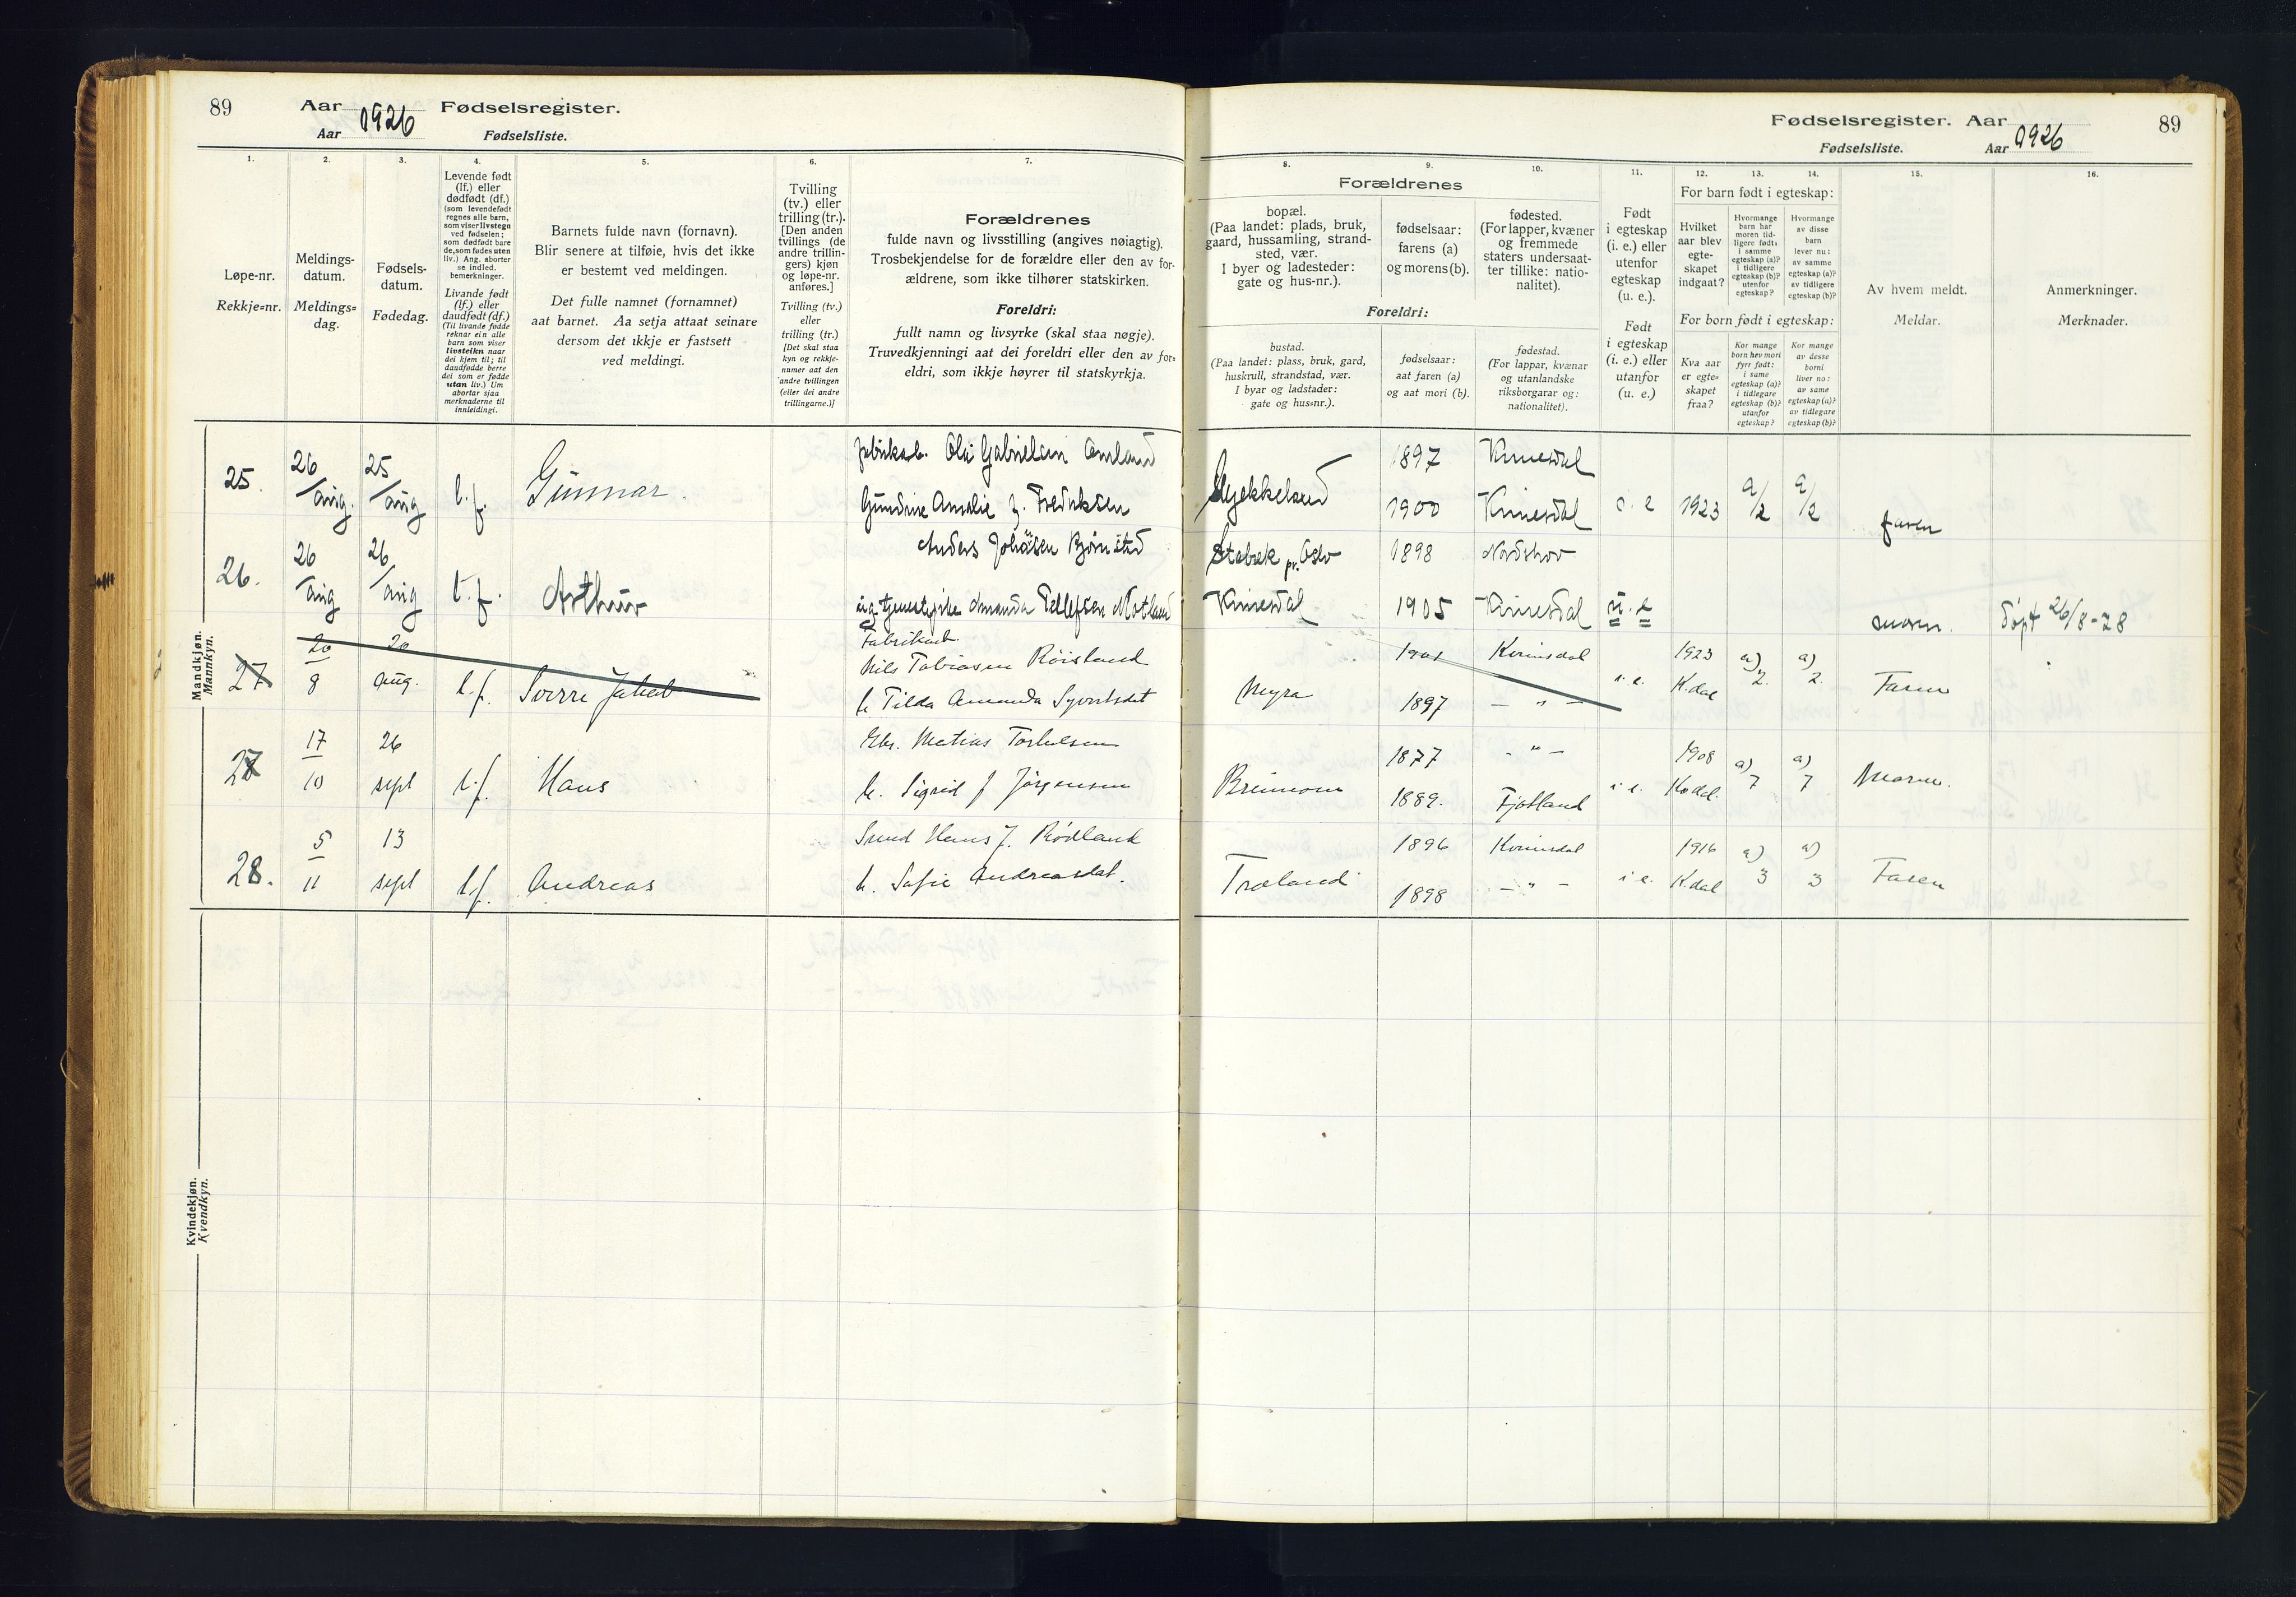 89 Aar 1926 Fødselsregister.
Aar Fødselsliste.
1. 2. 3. 4. 5. 6. 7.
Løpe-nr.
Rekkje=nr.
Meldings-
datum.
Meldings=
dag.
Fødsels-
datum.
Fødedag.
Levende født
(lf.) eller
dødfødt (df.)
(som levendefødt
regnes alle barn,
som viser livstegn
ved fødselen;
som dødfødt bare
de, som fødes uten
liv.) Ang. aborter
se indled.
bemerkninger.
Livande født
(lf.) eller
daudfødt (df.)
(Til livande fødde
reknar ein alle
barn som viser
livsteikn naar
dei kjem til; til
daudfødde berre
dei som er fødde
utan liv.) Um
abortar sjaa
merknaderne til
innleidingi.
Barnets fulde navn (fornavn).
Blir senere at tilføie, hvis det ikke
er bestemt ved meldingen.
Det fulle namnet (fornamnet)
aat barnet. Aa setja attaat seinare
dersom det ikkje er fastsett
ved meldingi.
Tvilling
(tv.) eller
trilling (tr.).
[Den anden
tvillings (de
andre trillin-
gers) kjøn
og løpe-nr.
anføres.]
Tvilling (tv.)
eller
trilling (tr.)
[Det skal staa
kyn og rekkje-
numer aat den
andre tvillingen
(eller dei andre
trillingarne.)]
Forældrenes
fulde navn og livsstilling (angives nøiagtig).
Trosbekjendelse for de forældre eller den av for-
ældrene, som ikke tilhører statskirken.
Foreldri:
fullt namn og livsyrke (skal staa nøgje).
Truvedkjenningi aat dei foreldri eller den av for=
eldri, som ikkje høyrer til statskyrkja.
Mandkjøn.
Mannkyn.
25. 26/aug. 25/aug l.f. Gunnar. fabrikarb. Ola Gabrielsen Omland
Gundine Amalie f. Fredriksen
26. 26/aug 26/aug l.f. Arthur Anders Johansen Bjørnstad
ug. tjenestepike Amanda Tellefsen Motland
27 20/8 20 aug. l.f. Sverre Jakob Fabrikarb.
Nils Tobiasen Røisland
h. Tilda Amanda Syvertsdat
27 17/10 26 sept l.f. Hans Gbr. Matias Torkelsen
h. Sigrid f Jørgensen
28. 5/11 13 sept l.f. Andreas Smed Hans J. Rødland
h. Sofie Andreasdat.
Kvindekjøn.
Kvendkyn.
Fødselsregister. Aar 1926 89
Fødselsliste. Aar
8. 9. 10. 11. 12. 13. 14. 15. 16.
Forældrenes
bopæl.
(Paa landet: plads, bruk,
gaard, hussamling, strand-
sted, vær.
I byer og ladesteder:
gate og hus-nr.).
fødselsaar:
farens (a)
og morens (b).
fødested.
(For lapper, kvæner
og fremmede
staters undersaat-
ter tillike: natio-
nalitet).
Foreldri:
bustad.
(Paa landet: plass, bruk, gard,
huskrull, strandstad, vær.
I byar og ladstader:
gate og hus=nr.).
fødselsaar:
aat faren (a)
og aat mori (b).
fødestad.
(For lappar, kvænar
og utanlandske
riksborgarar og:
nationalitet).
Født
i egteskap
(i. e.) eller
utenfor
egteskap
(u. e.).
Født
i egteskap
(i. e.) eller
utanfor
(u. e.)
For barn født i egteskap:
Hvilket
aar blev
egte-
skapet
indgaat?
Hvormange
barn har
moren tid-
ligere født:
i samme
egteskap (a)?
i tidligere
egteskap (b)?
utenfor
egteskap?
Hvormange
av disse
barn
lever nu:
av samme
egteskap (a)?
av tidligere
egteskap (b)?
For born født i egteskap:
Kva aar
er egte=
skapet
fraa?
Kor mange
born hev mori
fyrr født:
i same
egteskap (a)?
i tidlegare
egteskap (b)?
utanfor
egteskap?
Kor mange
av desse
borni
liver no:
av same
egteskap (a)?
av tidlegare
egteskap (b)?
Av hvem meldt.
Meldar.
Anmerkninger.
Merknader.
1897 Kvinesdal
1900 Kvinesdal i. e 1923 a/2 a/2 faren
Stabæk pr. Oslo 1898 Nordshov
Kvinesdal 1905 Kvinesdal u. e moren. døpt 26/8-28
1901 Kvinesdal 1923 a) 2. a) 2.
Myra 1897 - " - i. e. K.dal Faren
1877 - " - 1908 a) 7 a) 7
1889. Fjotland i. e. Kvdal. Moren.
1896 Kvinesdal 1916 a) 3 a) 3
Træland 1898 - " - i e. K.dal Faren